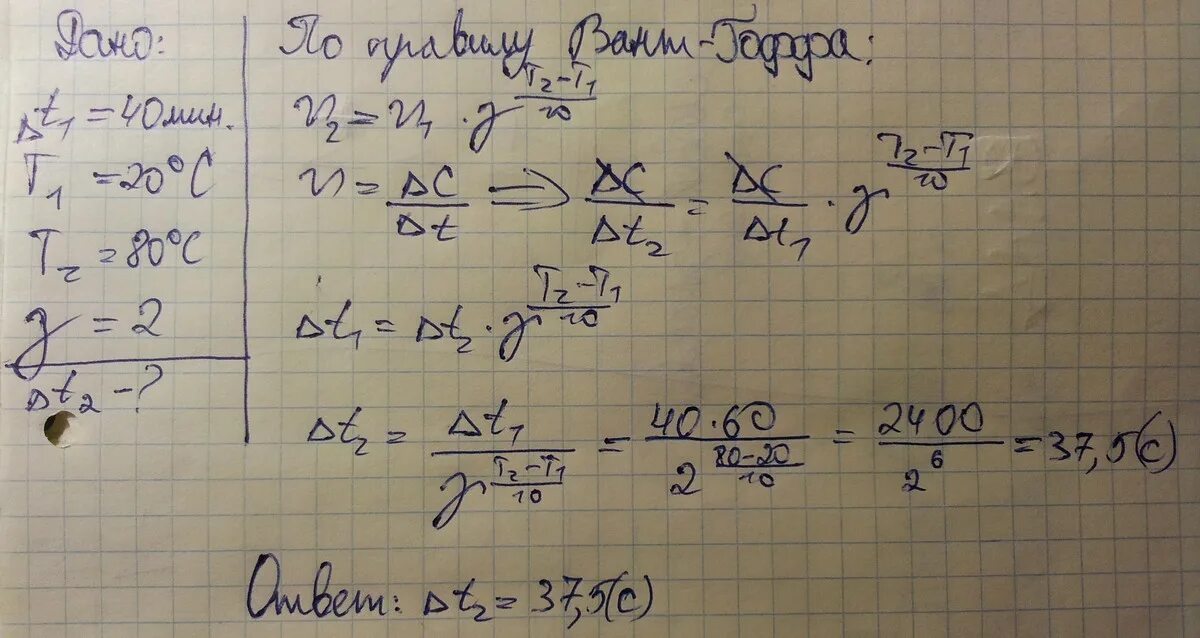 Дано:
Δt₁ = 40 мин.
T₁ = 20°C
T₂ = 80°C
γ = 2
Δt₂ - ?
По правилу Вант-Гоффа:
υ₂ = υ₁ · γ^((T₂-T₁)/10)
υ = ΔC/Δt ⇒ ΔC/Δt₂ = ΔC/Δt₁ · γ^((T₂-T₁)/10)
Δt₁ = Δt₂ · γ^((T₂-T₁)/10)
Δt₂ = Δt₁/γ^((T₂-T₁)/10) = 40·60/2^((80-20)/10) = 2400/2⁶ = 37,5(с)
Ответ: Δt₂ = 37,5(с)